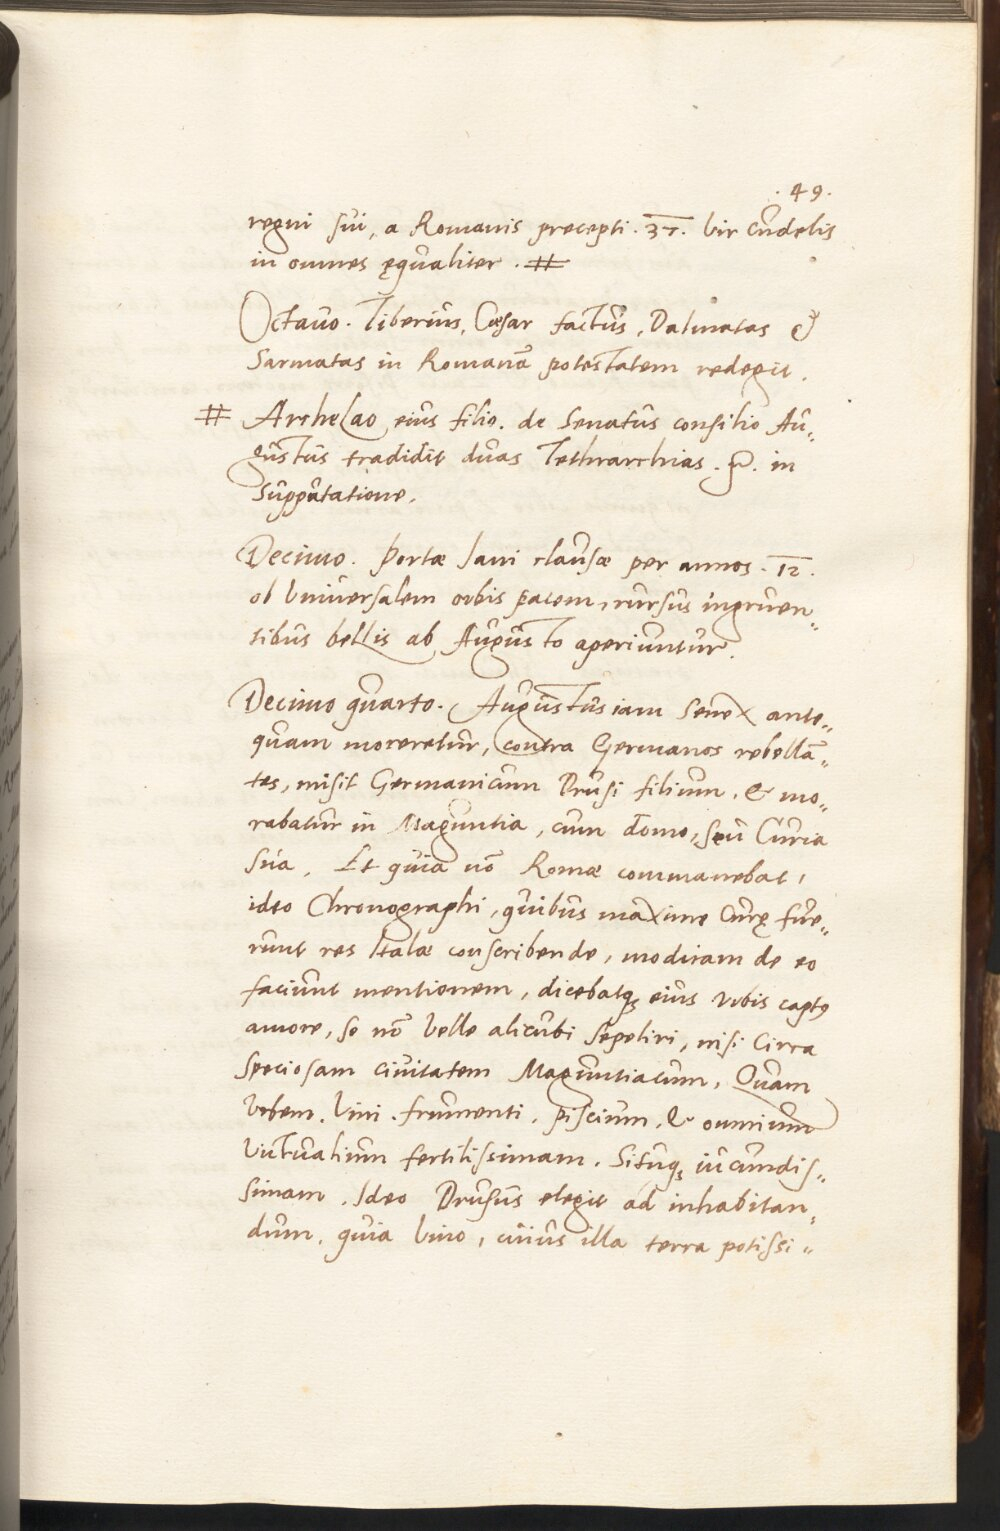 . 49 .
regni sui, a Romanis precepti . 37. Vir crudelis
in omnes ęqualiter . #
Octauo . Tiberius, Cæsar factus, Dalmatas &
Sarmatas in Romanā potestatem redegit .
# Archelao eius filio. de Senatus consilio Au„
gustus tradidit duas Tethrarchias . in
supputatione .
Decimo . Portæ Iani clausæ per annos . 12 .
ob Vniuersalem orbis pacem, rursus ingruen„
tibus bellis ab Augusto aperiuntur .
Decimo quarto . Augustus iam Senex ante„
quam moreretur, contra Germanos rebellā„
tes, misit Germanicum Drusi filium . & mo„
rabatur in Maguntia, cum domo, seu Curia
sua . Et quia nō Romæ commanebat,
ideo Chronographi, quibus maxime curę fue„
runt res Italæ conscribende, modicam de eo
faciunt mentionem, dicebatqꝫ eius vrbis captꝰ
amore, se nō Velle alicubi sepeliri, nisi circa
speciosam ciuitatem Maguntiacum, Quam
Vrbem. Vini . frumenti . piscium . & omnium
Victualium fertilissimam . Situqꝫ iucundis„
simam . Ideo Drusus elegit ad inhabitan„
dum, quia Vino, cuius illa terra potissi„